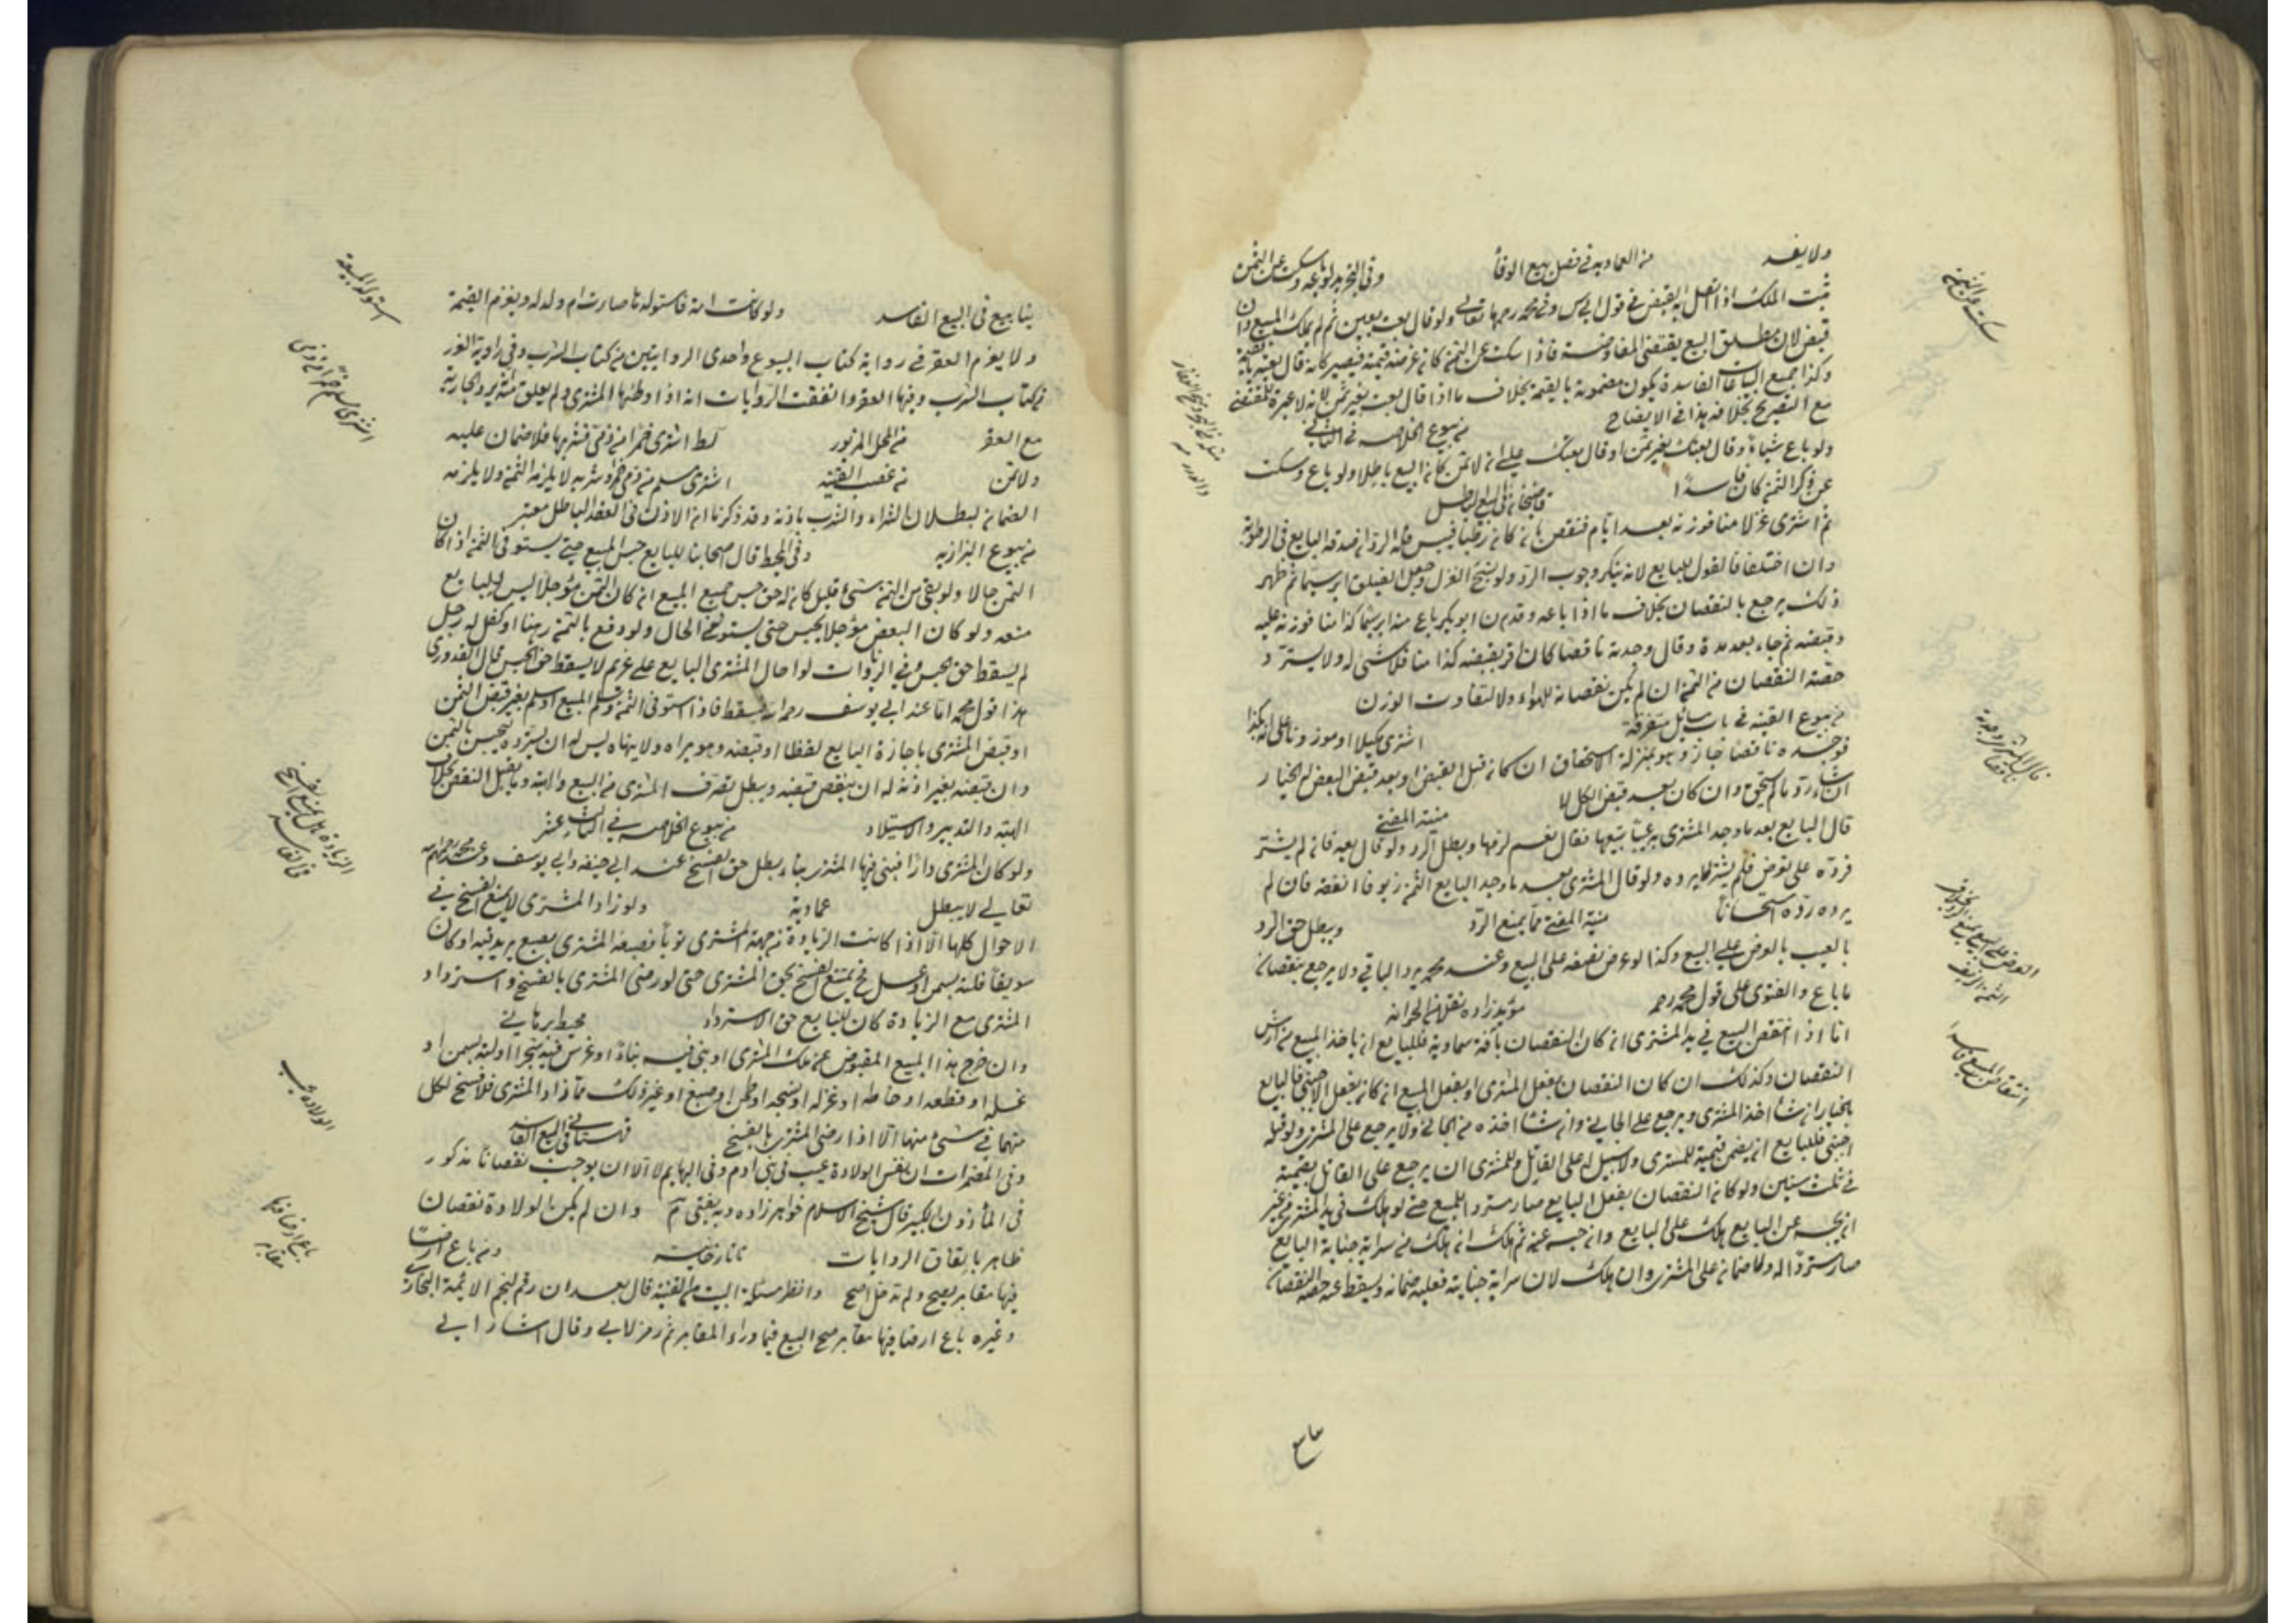 ولا يفسد من العمادية في فصل بيع الوفا وفي التجريد لو باعه وسكت عن الثمن
ثبت الملك اذا اتصل به القبض في قول ابي س وفي محمد رحمهما تعالى ولو قال بعت بعين ثم لم يملك المبيع وان
قبض لان مطلق البيع يقتضي المعاوضة فاذا سكت عن الثمن كان غرضه قيمته فيصير كانه قال بعته بقيمته
وكذا جميع البياعات الفاسدة يكون مضمونة بالقيمة بخلاف ما اذا قال بعت بغير ثمن لانه لا عبرة للمقتضى
مع التصريح بخلافه هذا في الايضاح من بيوع الخلاصة في الثاني
ولو باع شيئا وقال بعتك بغير ثمن او قال بعتك على ان لا ثمن كان البيع باطلا ولو باع وسكت
عن ذكر الثمن كان فاسدا قاضيخان في البيع الباطل
ثم اشترى غزلا منا فوزنه بعد ايام فنقص بانه كان رطبا فيبس فله الرد ان صدقه البايع في الرطوبة
وان اختلفا فالقول للبايع لانه ينكر وجوب الرد ولو نسج الغزل وجعل الفيلق ابريسما ثم ظهر
ذلك يرجع بالنقصان بخلاف ما اذا باعه وقد من ابو بكر باع منه ابريسما كذا منا فوزنه عليه
وقبضه ثم جاء بعد مدة وقال وجدته ناقصا كان اقر بقبضه كذا منا فلا شئ له ولا يسترد
حصة النقصان من الثمن ان لم يكن نقصانه للهواء ولا لتفاوت الوزن
من بيوع القنية في باب مسائل متفرقة اشترى مكيلا او موزونا على انه كذا
فوجده ناقصا جاز وهو بمنزلة الاستحقاق ان كان قبل القبض او بعد قبض البعض له الخيار
ان شاء رد ما لم يستحق وان كان بعد قبض الكل لا منية المفتي
قال البايع بعد ما وجد المشتري به عيبا بتبيعها فقال نعم لزمها وبطل الرد ولو قال بعه فان لم يشتر
فرده على فعرض فلم يشتر فله يرده ولو قال المشتري بعد ما وجد البايع الثمن زيوفا انفقه فان لم
يرده رده استحسانا منية المفتي فيما يمنع الرد ويبطل حق الرد
بالعيب بالعرض على البيع وكذا لو عرض نصفه على البيع وعند محمد يرد الباقي ولا يرجع بنقصان
ما باع والفتوى على قول محمد رحمه مؤيدزاده نقلا من الخزانة
اما اذا انتقص المبيع في يد المشتري ان كان النقصان بآفة سماوية فللبايع ان ياخذ المبيع مع ارش
النقصان وكذلك ان كان النقصان بفعل المشتري او بفعل المبيع ان كان بفعل الاجنبي فالبايع
بالخيار ان شاء اخذ المشتري ويرجع على الجاني وان شاء اخذه من الجاني ولا يرجع على المشتري ولو قتله
اجنبي فللبايع ان يضمن قيمته للمشتري ولا سبيل له على القاتل وللمشتري ان يرجع على القاتل بقيمته
في ثلث سنين ولو كان النقصان بفعل البايع صار مستردا للمبيع حتى لو هلك في يد المشتري من غير
ان يحبسه عن البايع هلك على البايع وان حبسه عنه ثم هلك ان هلك من سراية جناية البايع
صار مستردا له ولا ضمان على المشتري وان هلك لا من سراية جنايته فعليه ضمانه ويسقط عنه حصة النقصان
سكت عن الثمن
قال المشتري وجدته ناقصا
العرض على البيع يمنع الرد بخلاف الثمن الزيف
انتقاض المبيع فاسدا
ينابيع في البيع الفاسد ولو كانت امة فاستولدها صارت ام ولد له ويغرم القيمة
ولا يغرم العقر في رواية كتاب البيوع واحدى الروايتين من كتاب الشرب وفي رواية اخر
من كتاب الشرب وفيها العقر واتفقت الروايات انه اذا وطئها المشتري ولم يعلق منه يرد الجارية
مع العقر من المحل المزبور اشترى خمرا من ذمي فشربها فلا ضمان عليه
ولا ثمن من غصب القنية اشترى مسلم من ذمي خمرا وشربه لا يلزمه الثمن ولا يلزمه
الضمان لبطلان الشراء والشرب باذنه وقد ذكرنا ان الاذن في العقد الباطل معتبر
من بيوع البزازية وفي المحيط قال اصحابنا للبايع حبس المبيع حتى يستوفي الثمن اذا كان
الثمن حالا ولو بقي من الثمن شئ قليل كان له حق حبس جميع المبيع ان كان الثمن مؤجلا ليس للبايع
منعه ولو كان البعض مؤجلا يحبس حتى يستوفي الحال ولو دفع بالثمن رهنا او كفل له رجل
لم يسقط حق الحبس وفي الزيادات لو احال المشتري البايع على غريم لا يسقط حق الحبس قال القدوري
هذا قول محمد اما عند ابي يوسف رحمه الله يسقط فاذا استوفى الثمن وسلم المبيع او سلم بغير قبض الثمن
او قبض المشتري باجازة البايع لفظا او قبضه وهو يراه ولا ينهاه ليس له ان يسترده ليحبس بالثمن
وان قبضه بغير اذنه له ان ينقض قبضه ويبطل تصرف المشتري من البيع والهبة وما يقبل النقض بخلاف
الهبة والتدبير والاستيلاد من بيوع الخلاصة في الثالث عشر
ولو كان المشترى دارا فبنى فيها المشتري بناء بطل حق الفسخ عند ابي حنيفة وابي يوسف وعند محمد رحمه الله
تعالى لا يبطل عمادية ولو زاد المشترى لا يمنع الفسخ في
الاحوال كلها الا اذا كانت الزيادة من جهة المشتري ثوبا فصبغه المشتري بصبغ يزيد فيه او كان
سويقا فلته بسمن او عسل فح يمتنع الفسخ بحق المشتري حتى لو رضي المشتري بالفسخ واسترداد
المشترى مع الزيادة كان للبايع حق الاسترداد محيط برهاني
وان خرج هذا المبيع المقبوض عن ملك المشتري او بنى فيه بناء او غرس فيه شجرا او لته بسمن او
غسله او قطعه او خاطه او غزله او نسجه او طحن او صبغ او غير ذلك مما زاد المشتري فلا فسخ لكل
منهما في شئ منها الا اذا رضي المشتري بالفسخ قهستاني في البيع الفاسد
وفي المضمرات ان نفس الولادة عيب في بني ادم وفي البهايم لا الا ان يوجب نقصانا مذكور
في المأذون الكبير قال شيخ الاسلام خواهرزاده وبه يفتى وان لم يكن الولادة نقصان
ظاهر باتفاق الروايات تاتارخانية ومن باع ارضا
فيها مقابر يصح ولم تدخل اصح وانظر مسئلة البيت من القنية قال بعد ان رقم لنجم الائمة البخاري
وغيره باع ارضا فيها مقابر صح البيع فيما وراء المقابر ثم رمز لابي وقال اشار ابي
استولد المبيعة
اشترى مسلم خمرا من ذمي
الزيادة هل تمنع الفسخ في الفاسد
الولادة عيب
باع ارضا فيها مقابر